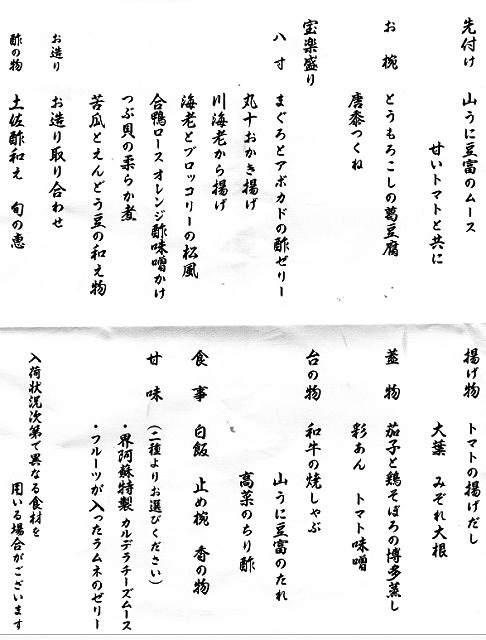 先付け 山うに豆富のムース
甘いトマトと共に
お 椀 とうもろこしの葛豆腐
唐黍つくね
宝楽盛り
八 寸 まぐろとアボカドの酢ゼリー
丸十おかき揚げ
川海老から揚げ
海老とブロッコリーの松風
合鴨ロース オレンジ酢味噌かけ
つぶ貝の柔らか煮
苦瓜とえんどう豆の和え物
お造り お造り取り合わせ
酢の物 土佐酢和え 旬の恵
揚げ物 トマトの揚げだし
大葉 みぞれ大根
蓋 物 茄子と鶏そぼろの博多蒸し
彩あん トマト味噌
台の物 和牛の焼しゃぶ
山うに豆富のたれ
高菜のちり酢
食 事 白飯 止め椀 香の物
甘 味 (二種よりお選びください)
・界阿蘇特製 カルデラチーズムース
・フルーツが入ったラムネのゼリー
入荷状況次第で異なる食材を
用いる場合がございます